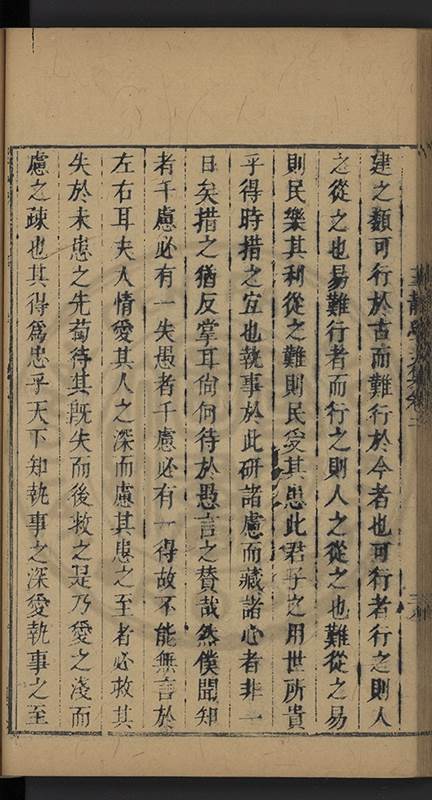 建之類可行於古而難行於今者也可行者行之則人
之從之也易難行者而行之則人之從之也難從之易
則民樂其利從之難則民受其患此君子之用世所貴
乎得時措之宜也執事於此研諸慮而藏諸心者非一
日矣措之猶反掌耳尙何待於愚言之贊哉然僕聞知
者千慮必有一失愚者千慮必有一得故不能無言於
左右耳夫人情愛其人之深而慮其患之至者必救其
失於未患之先苟待其旣失而後救之是乃愛之淺而
慮之疎也其得爲忠乎天下知執事之深愛執事之至